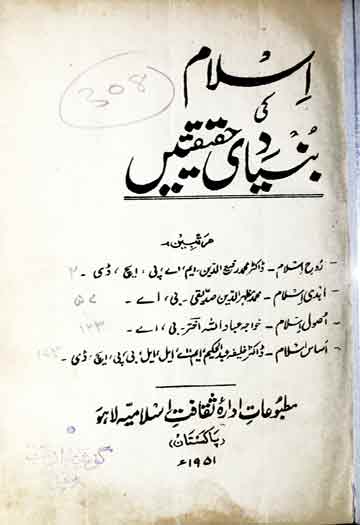 308
اسلام
کی
بنیادی حقیقتیں
مرتبین
روحِ اسلام - ڈاکٹر محمد رفیع الدین، ایم، اے، پی، ایچ، ڈی - ۲
ابدی اسلام - محمد مظہر الدین صدیقی - بی، اے -
اصولِ اسلام - خواجہ عباد اللہ اختر، بی، اے - ۱۲۳
اساس اسلام - ڈاکٹر خلیفہ عبدالحکیم، ایم، اے، ایل، ایل، بی، پی، ایچ، ڈی -
مطبوعات ادارۂ ثقافت اسلامیہ لاہور
(پاکستان)
۱۹۵۱ء